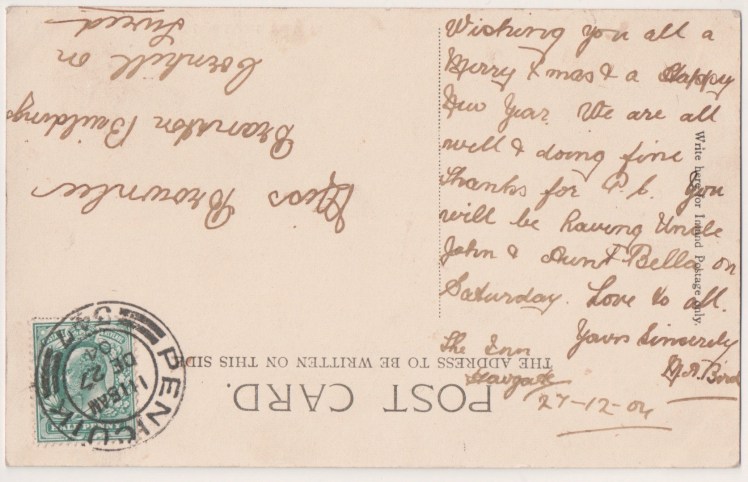 Wishing you all a
Merry Xmas & a Happy
New Year. We are all
well & doing fine
thanks for P.C. You
will be having Uncle
John & Aunt Bella on
Saturday. Love to all.
Yours Sincerely
M.A. Bird
The Inn
Howgate
27-12-04
Write here for Inland Postage only.
POST CARD.
THE ADDRESS TO BE WRITTEN ON THIS SIDE
Miss Brownlee
Branxton Buildings
Cornhill on
Tweed
PENICUIK
11 15 AM
DE 27
04
331
HALFPENNY